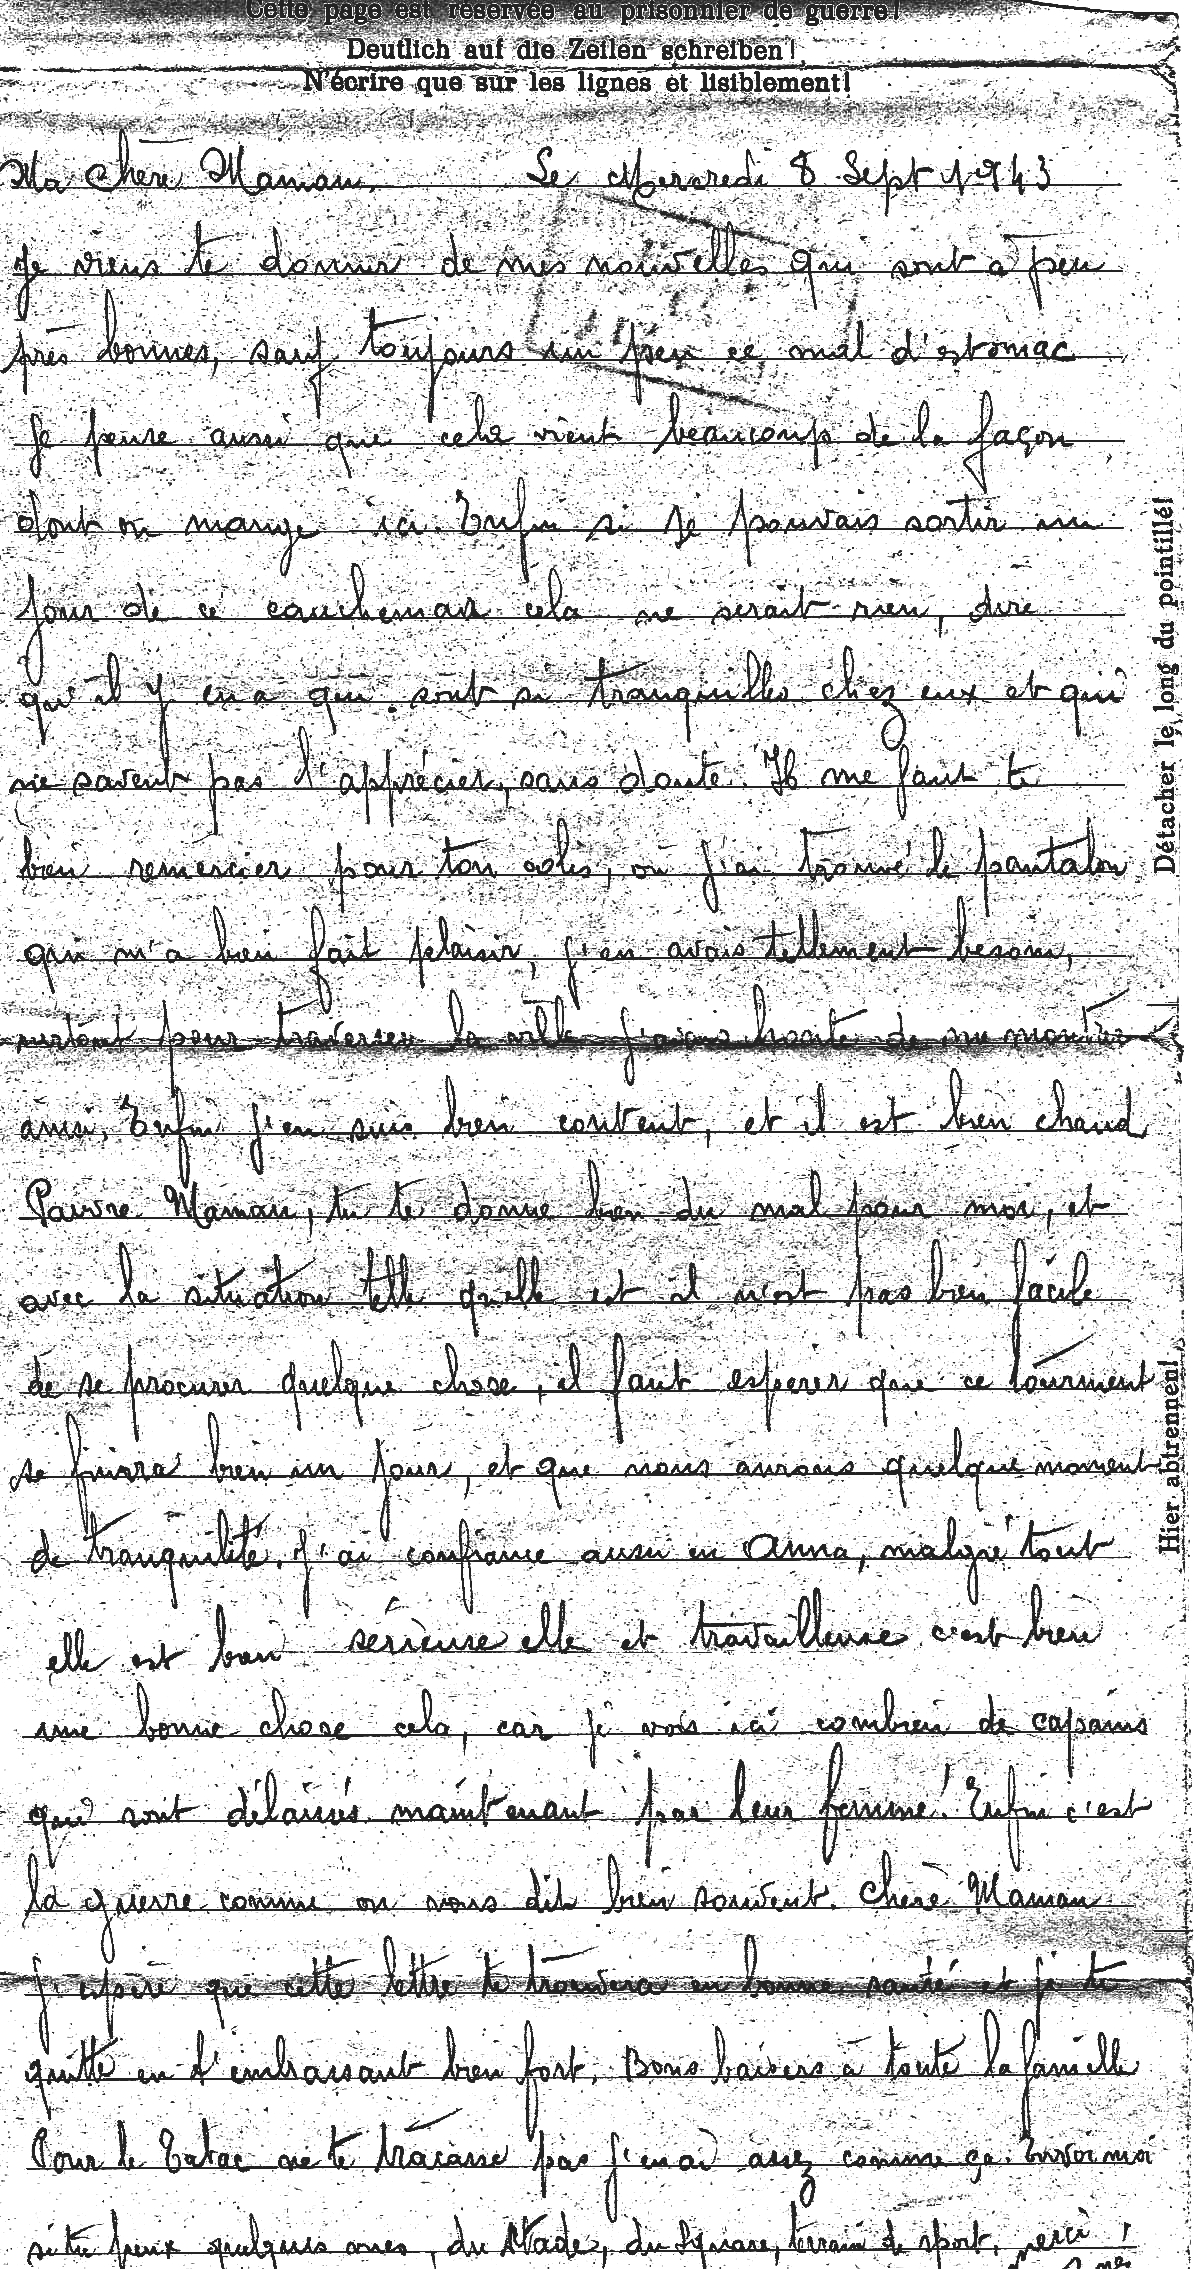 Cette page est réservée au prisonnier de guerre!
Deutlich auf die Zeilen schreiben!
N'écrire que sur les lignes et lisiblement!
Ma Chère Maman. Le Mercredi 8 Sept 1943
Je viens te donner de mes nouvelles qui sont à peu
près bonnes, sauf toujours un peu ce mal d'estomac
Je pense aussi que cela vient beaucoup de la façon
dont on mange ici. Enfin si je pouvais sortir un
jour de ce cauchemar cela ne serait rien, dire
qu'il y en a qui sont si tranquilles chez eux et qui
ne savent pas l'apprécier, sans doute. Il me faut te
bien remercier pour ton colis, où j'ai trouvé le pantalon
qui m'a bien fait plaisir, j'en avais tellement besoin,
surtout pour traverser la ville j'avais honte de me montrer
ainsi, Enfin j'en suis bien content, et il est bien chaud
Pauvre Maman, tu te donne bien du mal pour moi, et
avec la situation telle quelle est il n'est pas bien facile
de se procurer quelque chose, il faut espérer que ce tourment
se finira bien un jour, et que nous aurons quelque moment
de tranquilité. J'ai confiance aussi en Anna, malgré tout
elle est bien sérieuse elle et travailleuse c'est bien
une bonne chose cela, car je vois ici combien de copains
qui sont délaissés maintenant par leur femme! Enfin c'est
la guerre comme on nous dit bien souvent. Chère Maman
J'espère que cette lettre te trouvera en bonne santé et je te
quitte en t'embrassant bien fort. Bons baisers à toute la famille
Pour le Tabac ne te tracasse pas j'en ai assez comme ça. Envoi moi
si tu peux quelques unes, du Stade, du Square, terrain de sport, merci!
Détacher le long du pointillé!
Hier abtrennen!